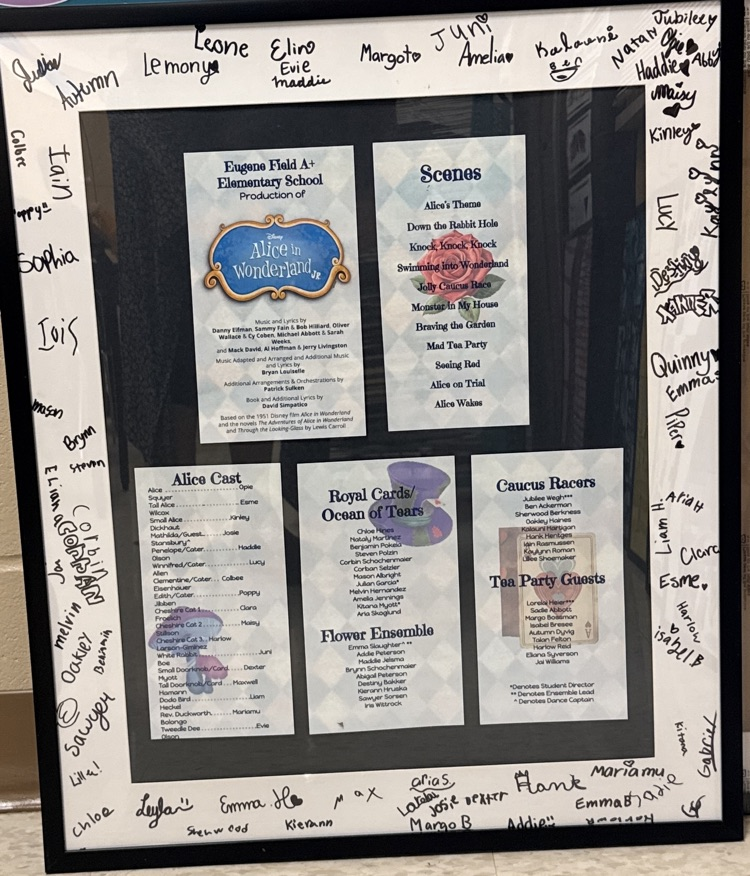 Jubileey
Leone
Elin
Juni
Nataly
Lemony
Evie
Margot
Amelia
Haddie
Abby
Autumn
maddie
Maisy
Kinley
Iain
Lucy
Sophia
Destiny
Quinny
Emma
Piper
mason
Brynn
Steven
Corbin
Jai
melvin
Oakley
Sawyer
Lilly!
Chloe
Leylani
Emma H
max
Sherwood
Kierann
arias
Josie
Dexter
Margo B
Hank
Addie
Mariamu
Emma B
Sadie
Gabriel
Liam H.
Ariah
Clara
Esme
Harlow
isabel B
Eugene Field A+
Elementary School
Production of
Disney
Alice in
Wonderland JR.
Music and Lyrics by
Danny Elfman, Sammy Fain & Bob Hilliard, Oliver
Wallace & Cy Coben, Michael Abbott & Sarah
Weeks,
and Mack David, Al Hoffman & Jerry Livingston
Music Adapted and Arranged and Additional Music
and Lyrics by
Bryan Louiselle
Additional Arrangements & Orchestrations by
Patrick Sulken
Book and Additional Lyrics by
David Simpatico
Based on the 1951 Disney film Alice in Wonderland
and the novels The Adventures of Alice in Wonderland
and Through the Looking-Glass by Lewis Carroll
Scenes
Alice's Theme
Down the Rabbit Hole
Knock, Knock, Knock
Swimming into Wonderland
Jolly Caucus Race
Monster in My House
Braving the Garden
Mad Tea Party
Seeing Red
Alice on Trial
Alice Wakes
Alice Cast
Alice....................Opie
Squyer
Tall Alice....................Esme
Wilcox
Small Alice....................Kinley
Dickhaut
Mathilda/Guest......Josie
Stansbury*
Penelope/Cater..........Haddie
Olson
Winnifred/Cater..........Lucy
Allen
Clementine/Cater... Colbee
Eisenhauer
Edith/Cater..............Poppy
Jibben
Cheshire Cat 1..........Clara
Froelich
Cheshire Cat 2..........Maisy
Stillson
Cheshire Cat 3... Harlow
Larson-Giminez
White Rabbit..............Juni
Boe
Small Doorknob/Card....Dexter
Myott
Tall Doorknob/Card....Maxwell
Hamann
Dodo Bird..............Liam
Heckel
Rev. Duckworth......Mariamu
Bolongo
Tweedle Dee..............Evie
Olson
Royal Cards/
Ocean of Tears
Chloe Hines
Nataly Martinez
Benjamin Pokela
Steven Polzin
Corbin Schochenmaier
Corban Selzler
Mason Albright
Julian Garcia*
Melvin Hernandez
Amelia Jennings
Kitana Myott*
Aria Skoglund
Flower Ensemble
Emma Slaughter* **
Addie Peterson
Maddie Jelsma
Brynn Schochenmaier
Abigail Peterson
Destiny Bakker
Kierann Hruska
Sawyer Sorsen
Iris Wittrock
Caucus Racers
Jubilee Wegh***
Ben Ackerman
Sherwood Berkness
Oakley Haines
Kalauni Hartigan
Hank Hentges
Iain Rasmussen
Kaylynn Roman
Lillee Shoemaker
Tea Party Guests
Lorelai Heier***
Sadie Abbott
Margo Bossman
Isabel Bresee
Autumn Dyvig
Talan Felton
Harlow Reid
Eliana Syverson
Jai Williams
*Denotes Student Director
** Denotes Ensemble Lead
^ Denotes Dance Captain